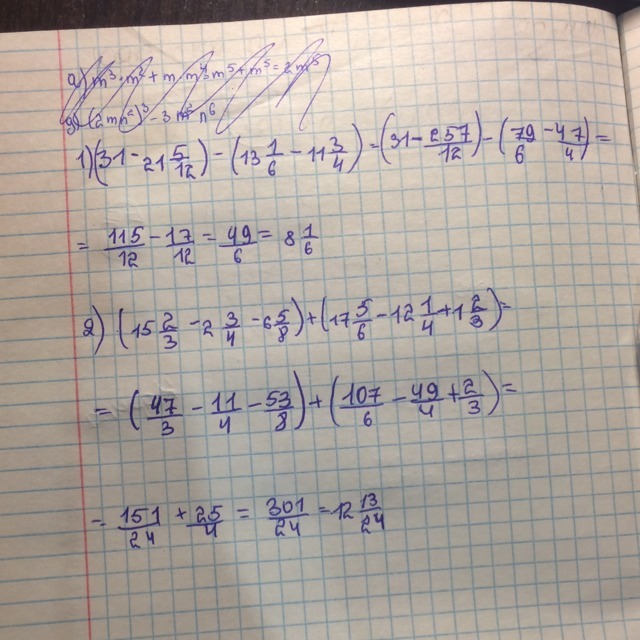 а) m³·m² + m·m⁴ = m⁵ + m⁵ = 2m⁵
(2mn²)³ - 3m² n⁶
1) (31 - 21 5/12) - (13 1/6 - 11 3/4) = (31 - 257/12) - (79/6 - 47/4) =
= 115/12 - 17/12 = 49/6 = 8 1/6
2) (15 2/3 - 2 3/4 - 6 5/8) + (17 5/6 - 12 1/4 + 1 2/3) =
= (47/3 - 11/4 - 53/8) + (107/6 - 49/4 + 2/3) =
= 151/24 + 25/4 = 301/24 = 12 13/24